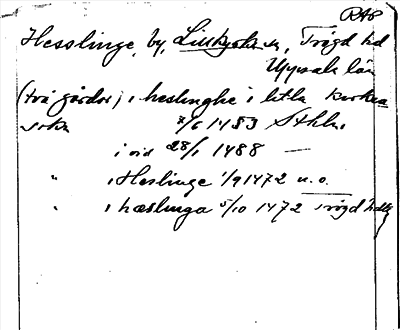 RAP
Hesslinge, by, Lillkyrka sn, Trögd hd
Uppsala län
(två gårdar) i heslinghe i litla kirkea
sokn 7/6 1483 Sthlm
i vid 28/1 1488 —
" i Heslinge 1/9 1472 u.o.
" i hæslinga 5/10 1472 Trögd hd